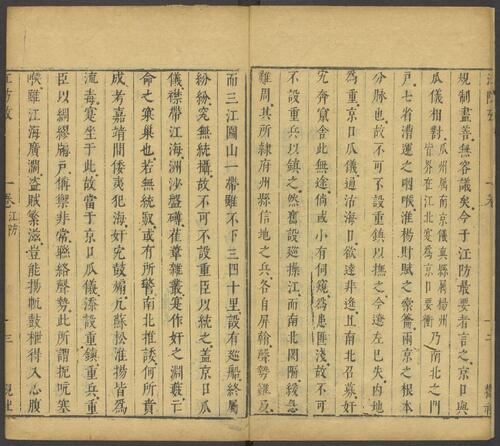 規制盡善無容議矣今于江防最要者言之京口與
瓜儀相對瓜州屬南京儀真縣屬楊州皆界在江北寔為京口要衝乃南北之門
戶七省漕運之咽喉淮楊財賦之索籥兩京之根本
分脉也故不可不設重鎮以撫之今遼左已失内地
為重京口瓜儀通沽海口欲達非遙且南北召募奸
宄奔竄舍此無途倘或小有伺窺為患匪淺故不可
不設重兵以鎮之然舊設廵操江而南北閡隔緩急
難周其所隷府州縣信地之兵各自屏翰聲勢雖及
而三江圌山一帶雖不下三四十里設有廵船終屬
紛紛究無統攝故不可不設重臣以統之盖京口瓜
儀襟帶江海洲沙盤礡萑葦雜叢寔作奸之淵藪亡
命之寨巢也若無統馭或有所警南北推諉何所責
成考嘉靖間倭夷犯海奸宄鼓煽亢蘇松淮揚皆為
流毒寔坐于此故當于京口瓜儀添設重鎮重兵重
臣以綢繆牖戶備禦非常聯絡聲勢此所謂扼吭塞
喉雖江海廣濶盜賊繁滋豈能揚帆鼓枻得入心腹
江防攷
一卷
江防
十三